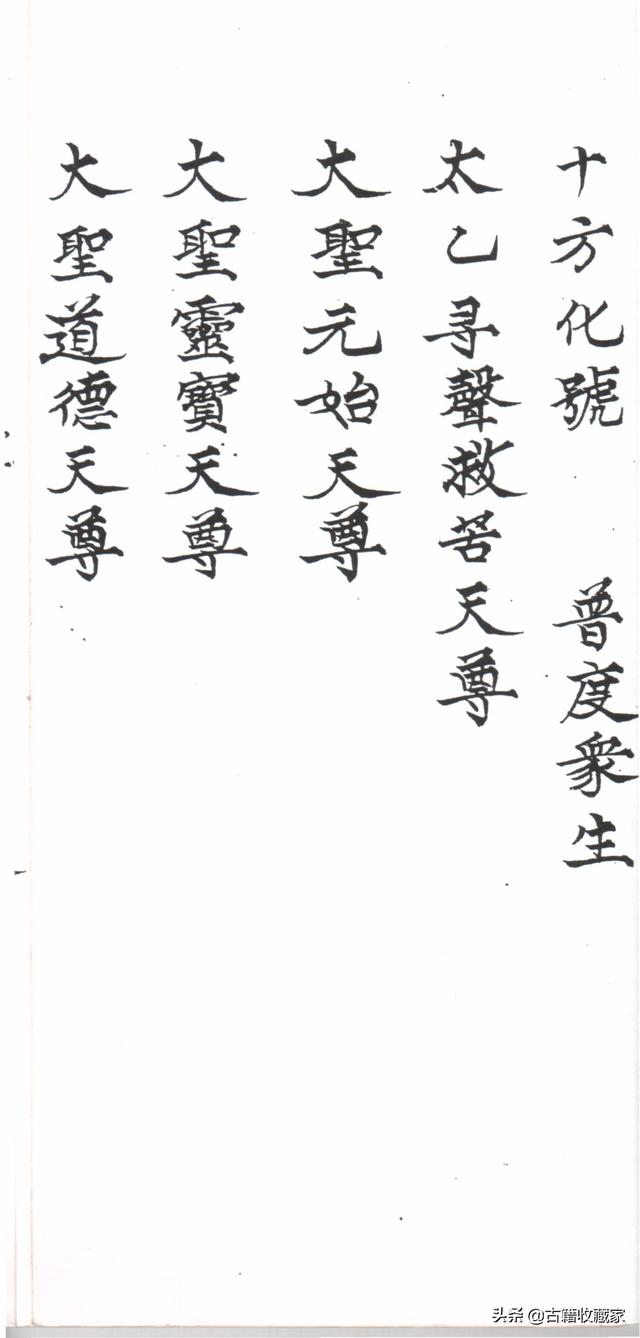 十方化號 普度衆生
太乙寻聲救苦天尊
大聖元始天尊
大聖靈寶天尊
大聖道德天尊
头条 @古籍收藏家